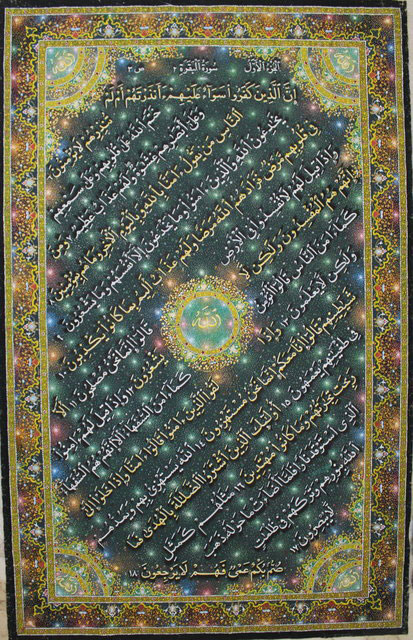 الجزء الأول سورة البقرة ٢ ص ٣
إن الذين كفروا سواء عليهم ءأنذرتهم أم لم
تنذرهم لا يؤمنون ٦
ختم الله على قلوبهم وعلى سمعهم
وعلى أبصرهم غشوة ولهم عذاب عظيم ٧ ومن
الناس من يقول ءامنا بالله وباليوم الأخر وما هم بمؤمنين ٨
يخدعون الله والذين ءامنوا وما يخدعون إلا أنفسهم وما يشعرون ٩
في قلوبهم مرض فزادهم الله مرضا ولهم عذاب أليم بما كانوا يكذبون ١٠
وإذا قيل لهم لا تفسدوا في الأرض
قالوا إنما نحن مصلحون ١١ ألا
إنهم هم المفسدون ولكن لا
يشعرون ١٢ وإذا قيل لهم ءامنوا
كما ءامن الناس قالوا أنؤمن
كما ءامن السفهاء ألا إنهم هم السفهاء
ولكن لا يعلمون ١٣ وإذا
لقوا الذين ءامنوا قالوا ءامنا وإذا خلوا إلى
شيطينهم قالوا إنا معكم إنما نحن مستهزءون ١٤ الله يستهزئ بهم ويمدهم
في طغينهم يعمهون ١٥ أولئك الذين اشتروا الضللة بالهدى فما
ربحت تجرتهم وما كانوا مهتدين ١٦ مثلهم كمثل
الذي استوقد نارا فلما أضاءت ما حوله ذهب
الله بنورهم وتركهم في ظلمت
لا يبصرون ١٧
صم بكم عمي فهم لا يرجعون ١٨
الله